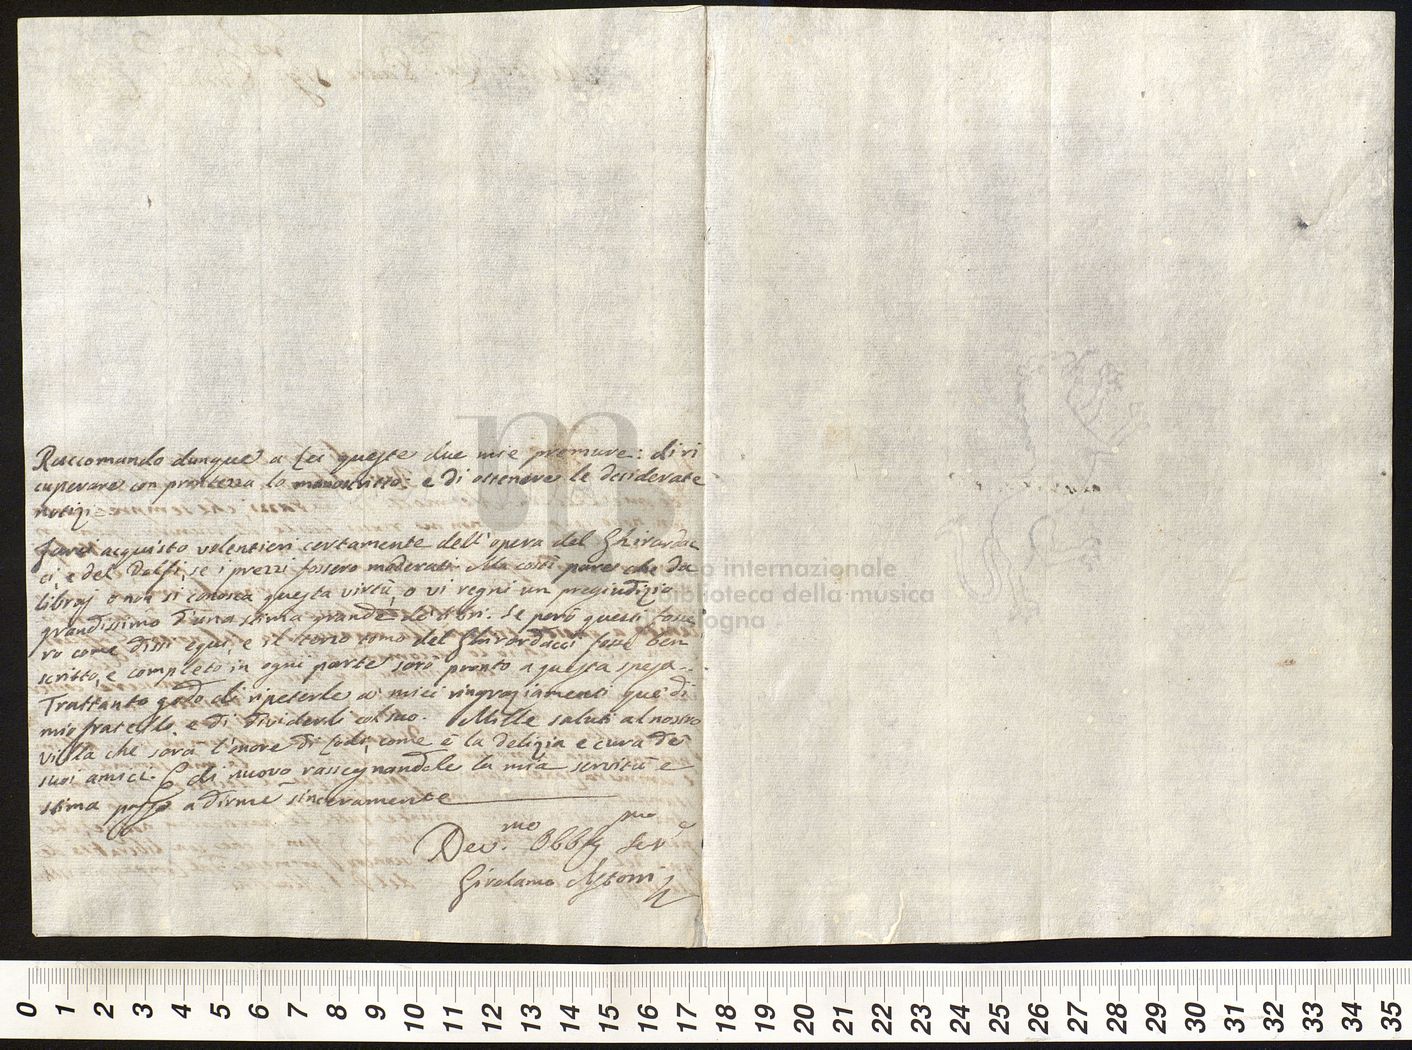 Raccomando dunque a Lei queste due mie premure: di ri
cuperare con prontezza lo manoscritto: e di ottenere le desiderate
notizie
Farei acquisto volentieri certamente dell'opera del Ghirardac
ci, e del Dolfi, se i prezzi fossero moderati. Ma costì pare che da
libraj o non si conosca questa virtù, o vi regni un pregiudizio
grandissimo d'una stima grande de' libri. Se però questi fosse
ro come dissi equi, e il terzo tomo del Ghirardacci fosse ben
scritto, e completo in ogni parte sarò pronto a questa spesa..
Trattanto godo di ripeterle a' miei ringraziamenti que' di
mio fratello, e di dividerli col suo. Mille saluti al nostro
che sarà l'onore di Lodi, come è la delizia e cura de'
suoi amici. E di nuovo rassegnandole la mia servitù e
stima passo a dirmi sinceramente
Dev.mo Obblig.mo Ser.e
Girolamo Astorri
museo internazionale
biblioteca della musica
di bologna
0 1 2 3 4 5 6 7 8 9 10 11 12 13 14 15 16 17 18 19 20 21 22 23 24 25 26 27 28 29 30 31 32 33 34 35